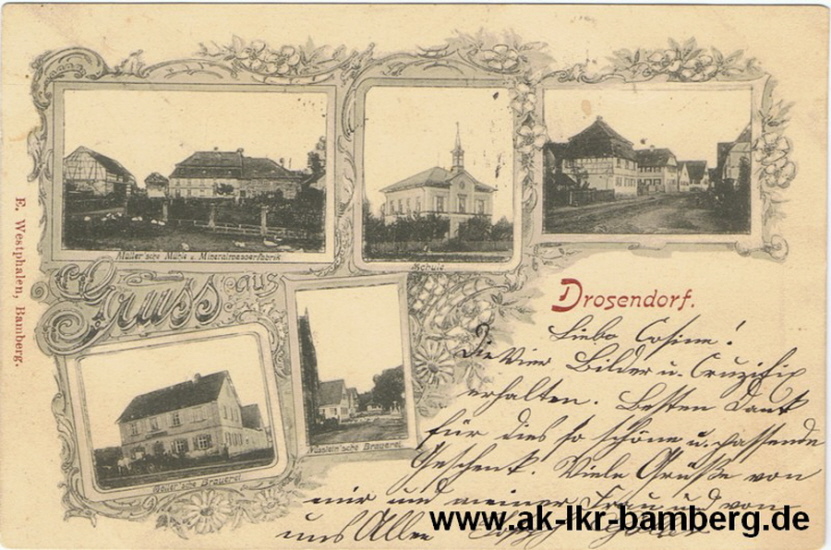 E. Westphalen, Bamberg.
Müller'sche Mühle u. Mineralwasserfabrik
Schule
Gruss aus
Drosendorf.
Müller'sche Brauerei
Brauerei
Liebe Cosine!
Die Vier Bilder u. Cruzifix
erhalten. Besten Dank
für dies so schöne u. passende
Geschenk. Viele Grüße von
mir und meiner Frau und von
uns Allen
www.ak-lkr-bamberg.de